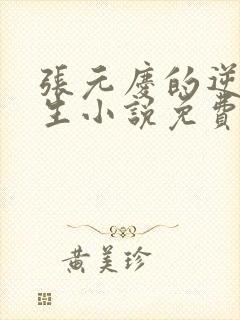 張元慶的逆
生小說免費
黃美珍